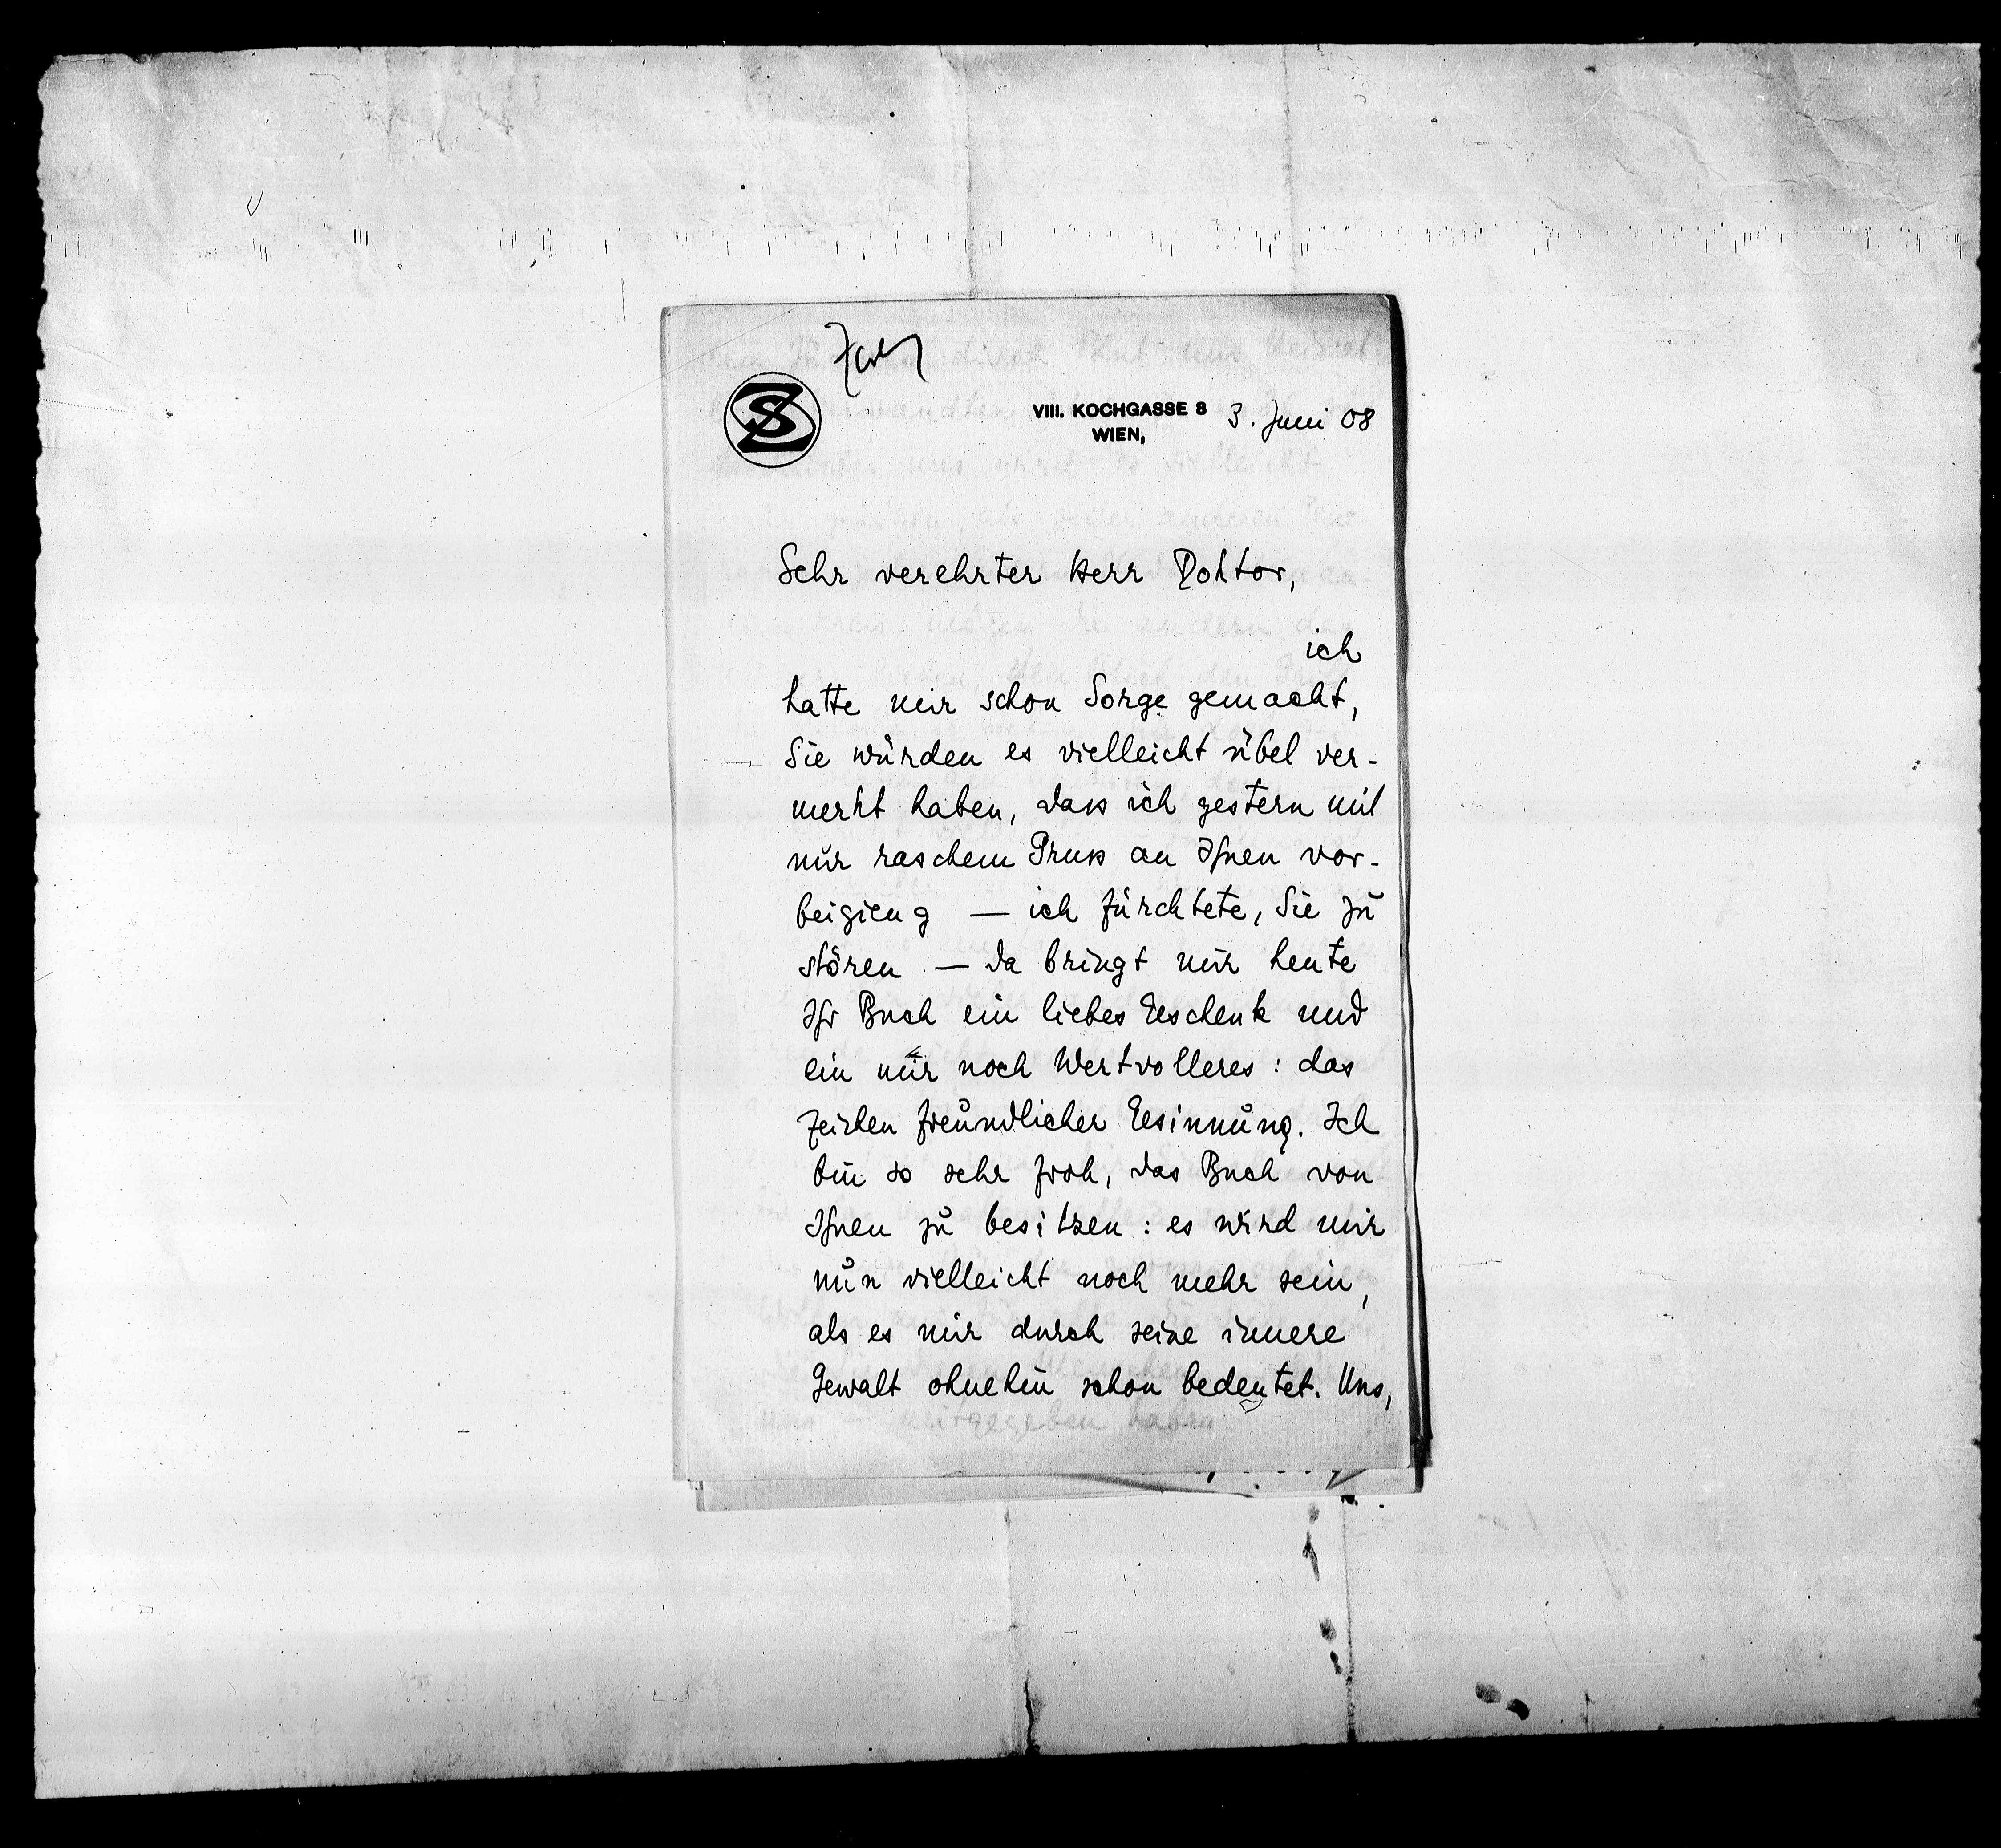 SZ
VIII. KOCHGASSE 8
WIEN, 3. Juni 08
Sehr verehrter Herr Doktor,
ich
hatte mir schon Sorge gemacht,
Sie würden es vielleicht übel ver-
merkt haben, dass ich gestern mit
nur raschem Gruss an Ihnen vor-
beigieng — ich fürchtete, Sie zu
stören — da bringt mir heute
Ihr Buch ein liebes Geschenk und
ein mir noch Wertvolleres: das
Zeichen freundlicher Gesinnung. Ich
bin so sehr froh, das Buch von
Ihnen zu besitzen: es wird mir
nun vielleicht noch mehr sein,
als es mir durch seine innere
Gewalt ohnehin schon bedeutet. Uns,